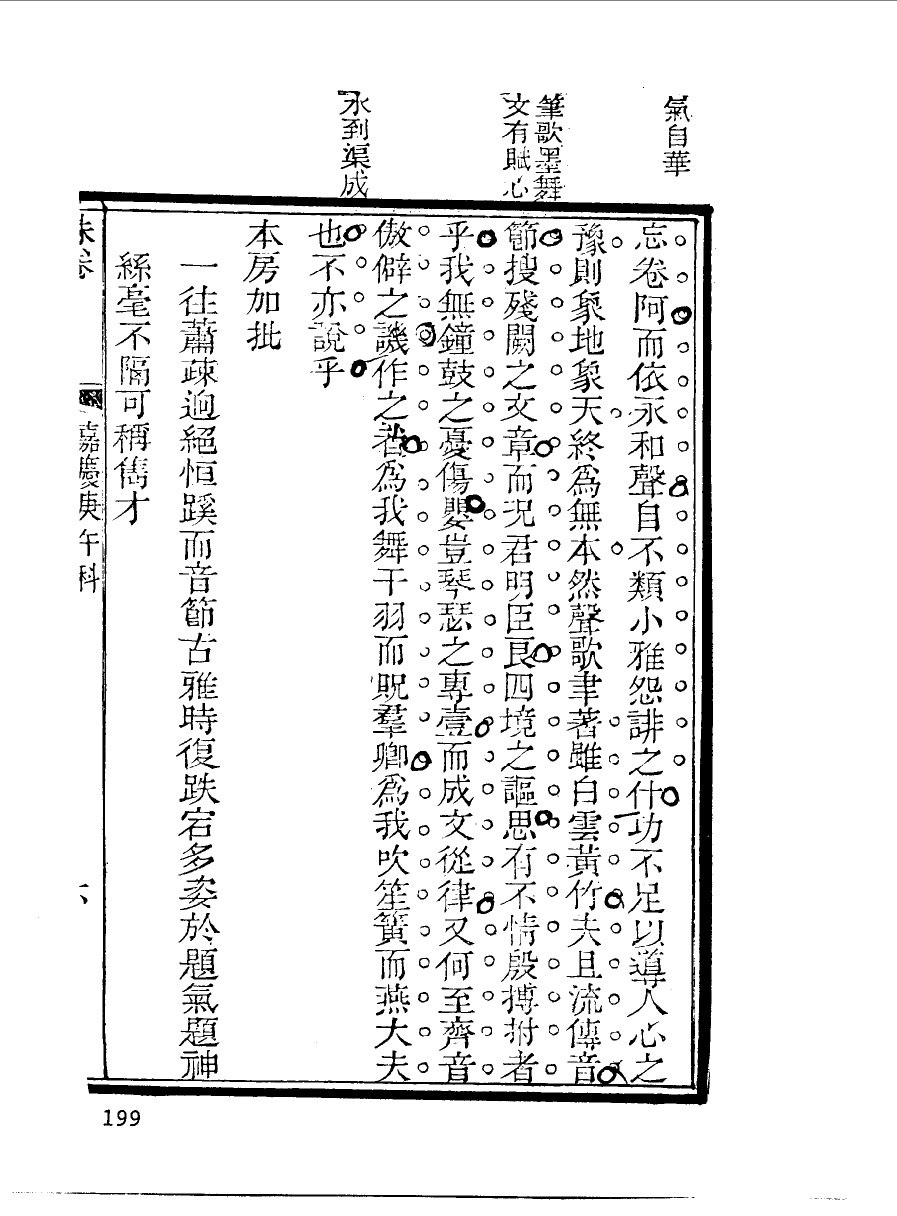 氣自華
筆歌墨舞
文有賦心
水到渠成
忘卷阿而依永和聲自不類小雅怨誹之什功不足以導人心之
豫則象地象天終爲無本然聲歌聿著雖白雲黃竹夫且流傳音
節搜殘闕之文章而况君明臣良四境之謳思有不情殷搏拊者
乎我無鐘鼓之憂傷嬰豈琴瑟之專壹而成文從律又何至齊音
傲僻之譏作之者爲我舞干羽而貺羣卿爲我吹笙簧而燕大夫
也不亦說乎
本房加批
一往蕭疎迥絕恒蹊而音節古雅時復跌宕多姿於題氣題神
絲毫不隔可稱雋才
硃卷
嘉慶庚午科
六
199